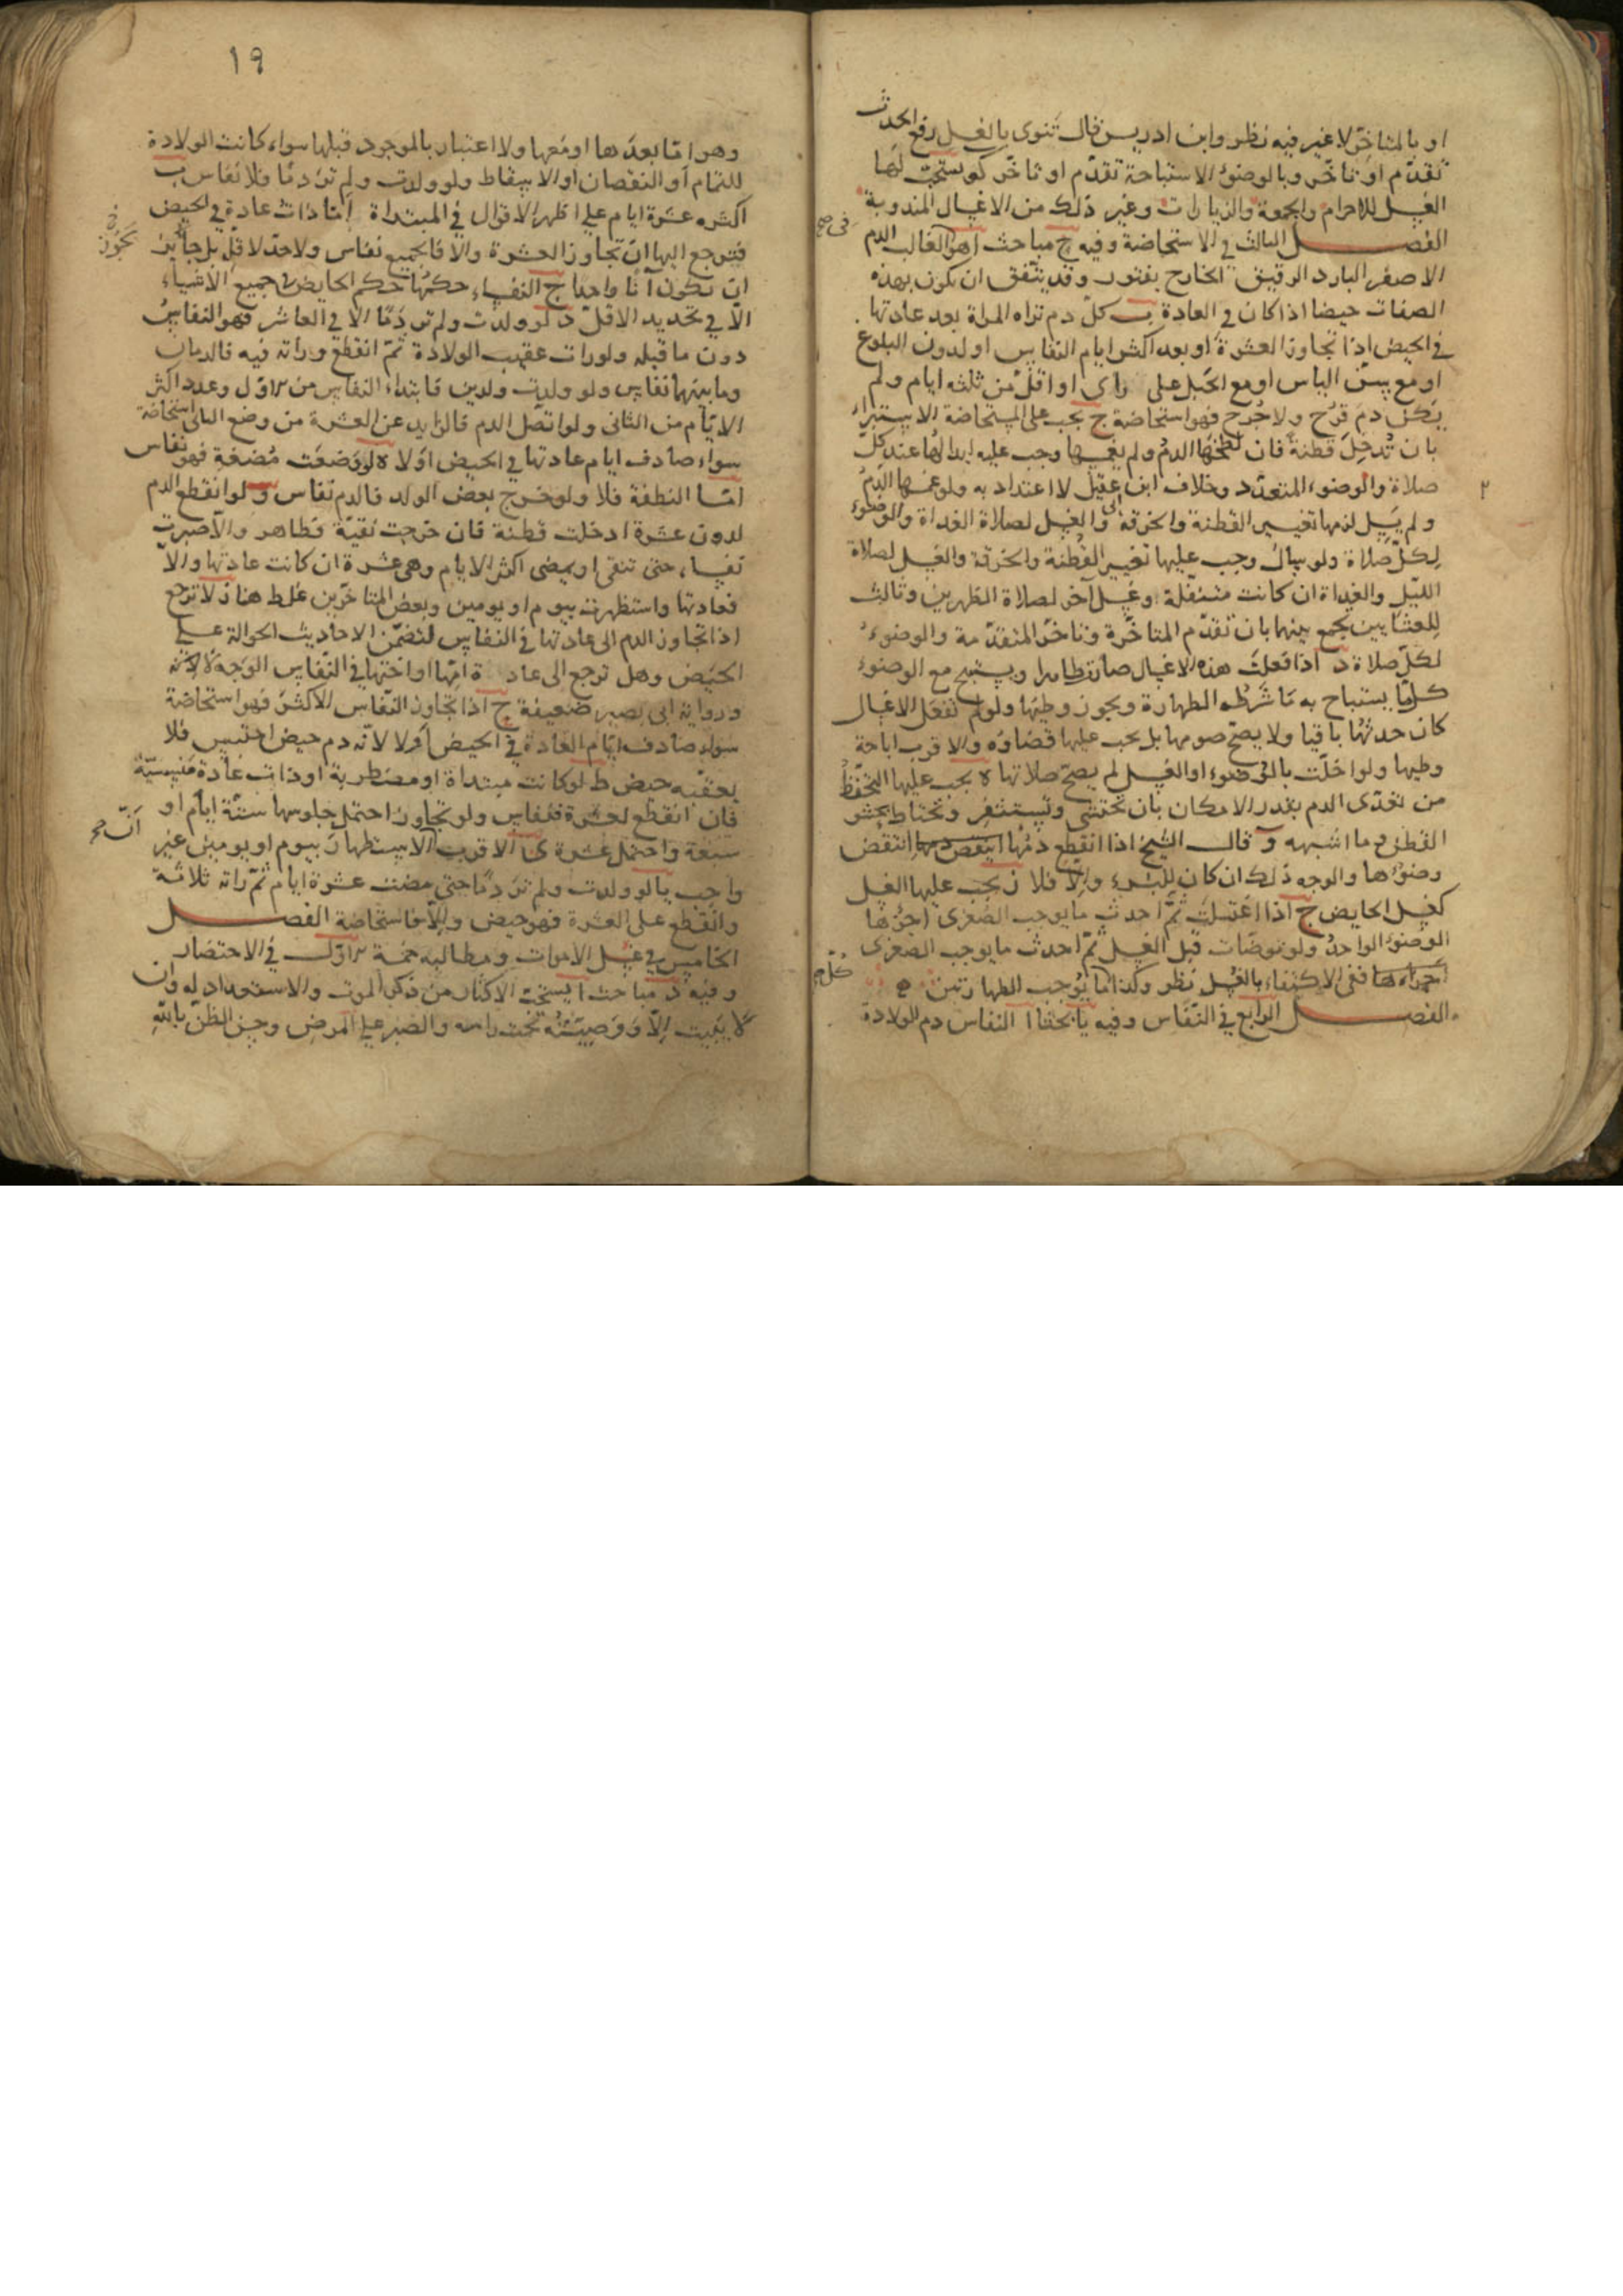 او بالمتاخر لا غير فيه نظر وابن ادريس قال تنوى بالغسل رفع الحدث
تقدّم او تاخّر وبالوضوء الاستباحة تقدّم او تاخّر كو يستحب لها
الغسل للاحرام والجمعة والزيارات وغير ذلك من الاغسال المندوبة
الفصل الثالث في الاستحاضة وفيه ح مباحث ا هو الغالب الدم
الاصفر البارد الرقيق الخارج بفتور وقد يتفق ان يكون بهذه
الصفات حيضا اذا كان في العادة ب كلّ دم تراه المراة بعد عادتها
في الحيض اذا تجاوز العشرة او بعد اكثر ايام النفاس او لدون البلوغ
او مع سنّ الياس او مع الحبل على راى او اقلّ من ثلثه ايام ولم
يكن دم قرح ولا جُرح فهو استحاضة ج يجب على المستحاضة الاستبراء
بان تُدخل قطنة فان لطخها الدم ولم يغمسها وجب عليه ابدالها عند كلّ
صلاة والوضوء المتعدّد وخلاف ابن عقيل لا اعتداد به ولو غمسها الدم
ولم يَسِل لزمها تغيير القطنة والخرقة والغسل لصلاة الغداة والوضوء
لكلّ صلاة ولو سال وجب عليها تغيير القطنة والخرقة والغسل لصلاة
الليل والغداة ان كانت متنفّلة وغسل آخر لصلاة الظهرين وثالث
للعشايين تجمع بينهما بان تقدّم المتاخّرة وتاخّر المتقدّمة والوضوء
لكلّ صلاة د اذا فعلت هذه الاغسال صارت طاهرا ويستبيح مع الوضوء
كلّما يستباح به ما شَرطُه الطهارة ويجوز وطيها ولو لم تفعل الاغسال
كان حدثها باقيا ولا يصحّ صومها بل يجب عليها قضاؤه والاقرب اباحة
وطيها ولو اخلّت بالوضوء او الغسل لم يصحّ صلاتها ه يجب عليها التحفّظ
من تعدّى الدم بقدر الامكان بان تحتشى وتستثفر وتحتاط بحشو
القطن وما اشبهه و قال الشيخ اذا انقطع دمُها انتقض
وضوءها والوجه ذلك ان كان للبُرء والّا فلا ز يجب عليها الغسل
كغسل الحايض ح اذا اغتسلت ثمّ احدث ما يوجب الصُغرى اجزءها
الوضوء الواحد ولو توضات قبل الغسل ثمّ احدث ما يوجب الصغرى
ففى الاكتفاء بالغسل نظر وكذا ما يُوجب الطهارتين
الفصل الرابع في النفاس وفيه يا بحثا ا النفاس دم الولادة
١٩
وهو امّا بعدها او معها ولا اعتبار بالموجود قبلها سواء كانت الولادة
للتمام او النقصان او الاسقاط ولو ولدت ولم تر دمًا فلا نفاس ب
اكثره عشرة ايام على اظهر الاقوال في المبتداة امّا ذات عادة في الحيض
فترجع اليها ان تجاوز العشرة والا فالجميع نفاس ولا حدّ لاقلّ بل جايز
ان تكون آنًا واحدا ج النفساء حكمها حكم الحايض في جميع الاشياء
الّا في تحديد الاقلّ د لو ولدت ولم تر دمًا الا في العاشر فهو النفاس
دون ما قبله ولو رات عقيب الولادة ثمّ انقطع وراته فيه فالدمان
وما بينهما نفاس ولو ولدت ولدين فابتداء النفاس من الاول وعدد اكثر
الايّام من الثانى ولو اتصل الدم فالزايد عن العشرة من وضع الثانى استحاضة
سواء صادف ايام عادتها في الحيض او لا ه لو وضعت مُضغة فهو نفاس
امّا النطفة فلا ولو خرج بعض الولد فالدم نفاس و لو انقطع الدم
لدون عشرة ادخلت قطنة فان خرجت نقيّة فطاهر والّا صبرت
نفساء حتى تنقى او يمضى اكثر الايام وهى عشرة ان كانت عادتها والّا
فعادتها واستظهرت بيوم او يومين وبعض المتاخّرين غلط هنا ز لا ترجع
اذا تجاوز الدم الى عادتها في النفاس لتضمّن الاحاديث الحوالة على
الحيض وهل ترجع الى عادة امّها او اختها في النّفاس الوجه لا لانّه
ورواية ابى بصير ضعيفة ح اذا تجاوز النّفاس الاكثر فهو استحاضة
سواء صادف ايّام العادة في الحيض او لا لانّه دم حيض احتبس فلا
يعقبه حيض ط لو كانت مبتداة او مضطربة او ذات عادة منسيّة
فان انقطع لعشرة فنفاس ولو تجاوز احتمل جلوسها ستّة ايام او
سبعة واحتمل عشرة ى الاقرب الاستظهار بيوم او يومين غير
واجب يا لو ولدت ولم تر دمًا حتى مضت عشرة ايام ثمّ راته ثلاثة
وانقطع على العشرة فهو حيض والّا فاستحاضة الفصل
الخامس في غسل الاموات ومطالبه خمسة الاوّل في الاحتضار
وفيه د مباحث ا يستحبّ الاكثار من ذكر الموت والاستعداد له وان
لا يبيت الّا ووصيّته تحت راسه والصبر على المرض وحسن الظنّ بالله